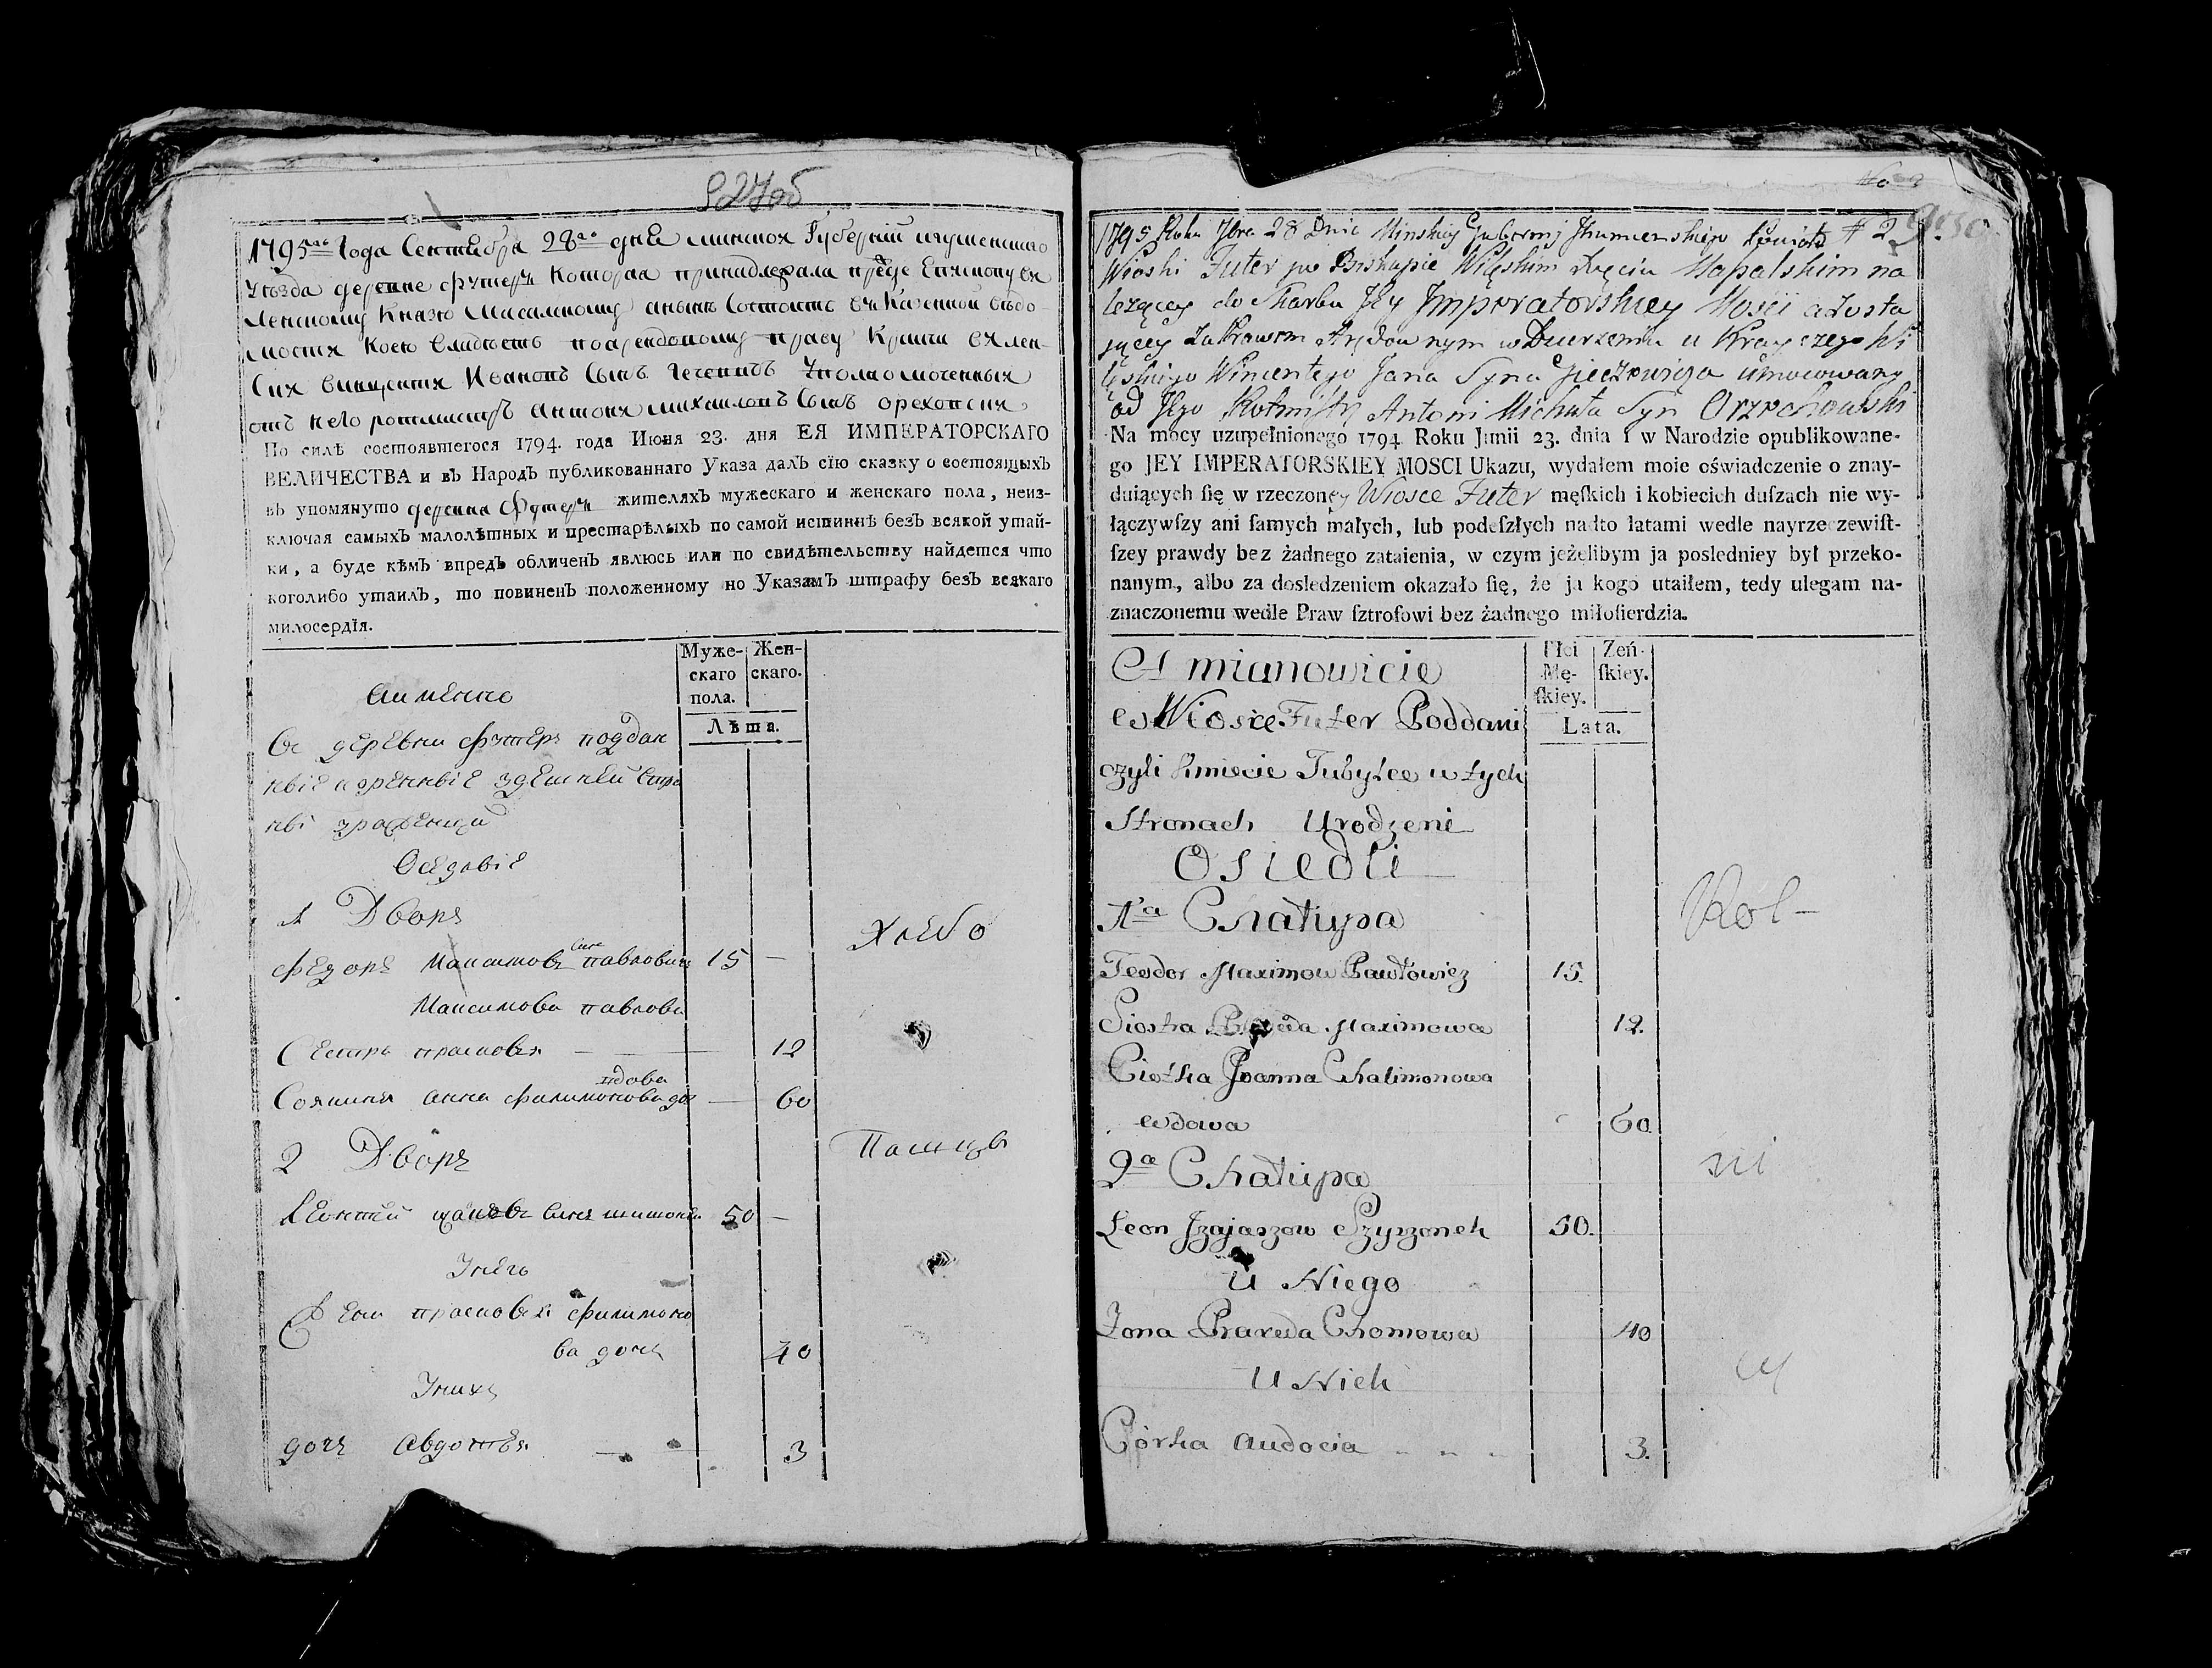 1795го Года Сентебра 28го дня минской Губерніи игуменского
уѣзда деревне футеръ Которая принадлежала преде Епископу ви
ленскому Князю Масалскому а нынѣ Состоитъ въ Казенной вѣдо
мости Коею Владѣетъ по арендовному праву Крайчи вилен
Ския Винцентия Ивановъ Сынъ Гечевичъ Уполномоченный
отъ Него ротмистръ Антони Михаиловъ Сынъ Ореховский
По силѣ состоявшегося 1794. года Июня 23. дня ЕЯ ИМПЕРАТОРСКАГО
ВЕЛИЧЕСТВА и въ Народъ публикованнаго Указа далъ сїю сказку о состоящыхъ
въ упомянуто деревна Футеръ жителяхъ мужескаго и женскаго пола, неиз-
ключая самыхъ малолѣтныхъ и престарѣлыхъ по самой истиннѣ безъ всякой утай-
ки, а буде кѣмъ впредь обличенъ явлюсь или по свидѣтельству найдется что
коголибо утаилъ, то повиненъ положенному по Указамъ штрафу безъ всякаго
милосердїя.
Муже-
скаго
пола.
Жен-
скаго.
Лѣта.
аименно
Ве деревни футеръ поддан
здешней
Оседлыі
1 Дворъ
Федоръ Максимовъ Сынъ павловичъ 15 —
Максимова павлова
Сестра прасковя — 12
вдова
анна филимонова доч — 60
2 Дворъ
Леонтей Сынъ шишонок 50 —
Унего
Жена прасковя филимоно
ва дочъ 40
Унихъ
дочъ Авдотья — 3
Хлебо
Пашцы
1795 Roku 7bra 28 Dnia Minskiey Gubernij Jhumenskiego Powiatu
Wioski Futer po Biskupie Wileńskim Xięciu Massalskim na
leżącey do Skarbu Jey Jmperatorskiey Mosci a zosta
jącey za Prawem Arędownym w Dzierżeniu u Krayczego Wi
leńskiego Wincentego Jana Syna Gieczewicza umocowany
od Jego Rotmistrz Antoni Michała Syn Orzechowski
Na mocy uzupełnionego 1794 Roku Junii 23. dnia i w Narodzie opublikowane-
go JEY IMPERATORSKIEY MOSCI Ukazu, wydałem moie oświadczenie o znay-
duiących ſię w rzeczoney Wiosce Futer męſkich i kobiecich duſzach nie wy-
łączywſzy ani ſamych małych, lub podeſzłych nadto latami wedle nayrzeczewiſt-
ſzey prawdy bez żadnego zataienia, w czym jeżelibym ja posledniey był przeko-
nanym, albo za dosledzeniem okazało ſię, że ja kogo utaiłem, tedy ulegam na-
znaczonemu wedle Praw ſztrofowi bez żadnego miłoſierdzia.
Płci
Mę-
ſkiey.
Zeń-
ſkiey.
Lata.
A mianowicie
w Wiosce Futer Poddani
czyli Kmiecie Tubylce w tych
Stronach Urodzeni
Osiedli
1a Chałupa
Teodor Maximow Pawłowicz 15.
Siostra Maximowa 12.
Ciotka Joanna Chalimonowa
wdowa 60
2a Chałupa
Leon Jzajaszow Szyszonek 50.
U Niego
Zona Praxeda Chomowa 40
U Nich
Córka Audocia 3.
Ról-
ni
cy